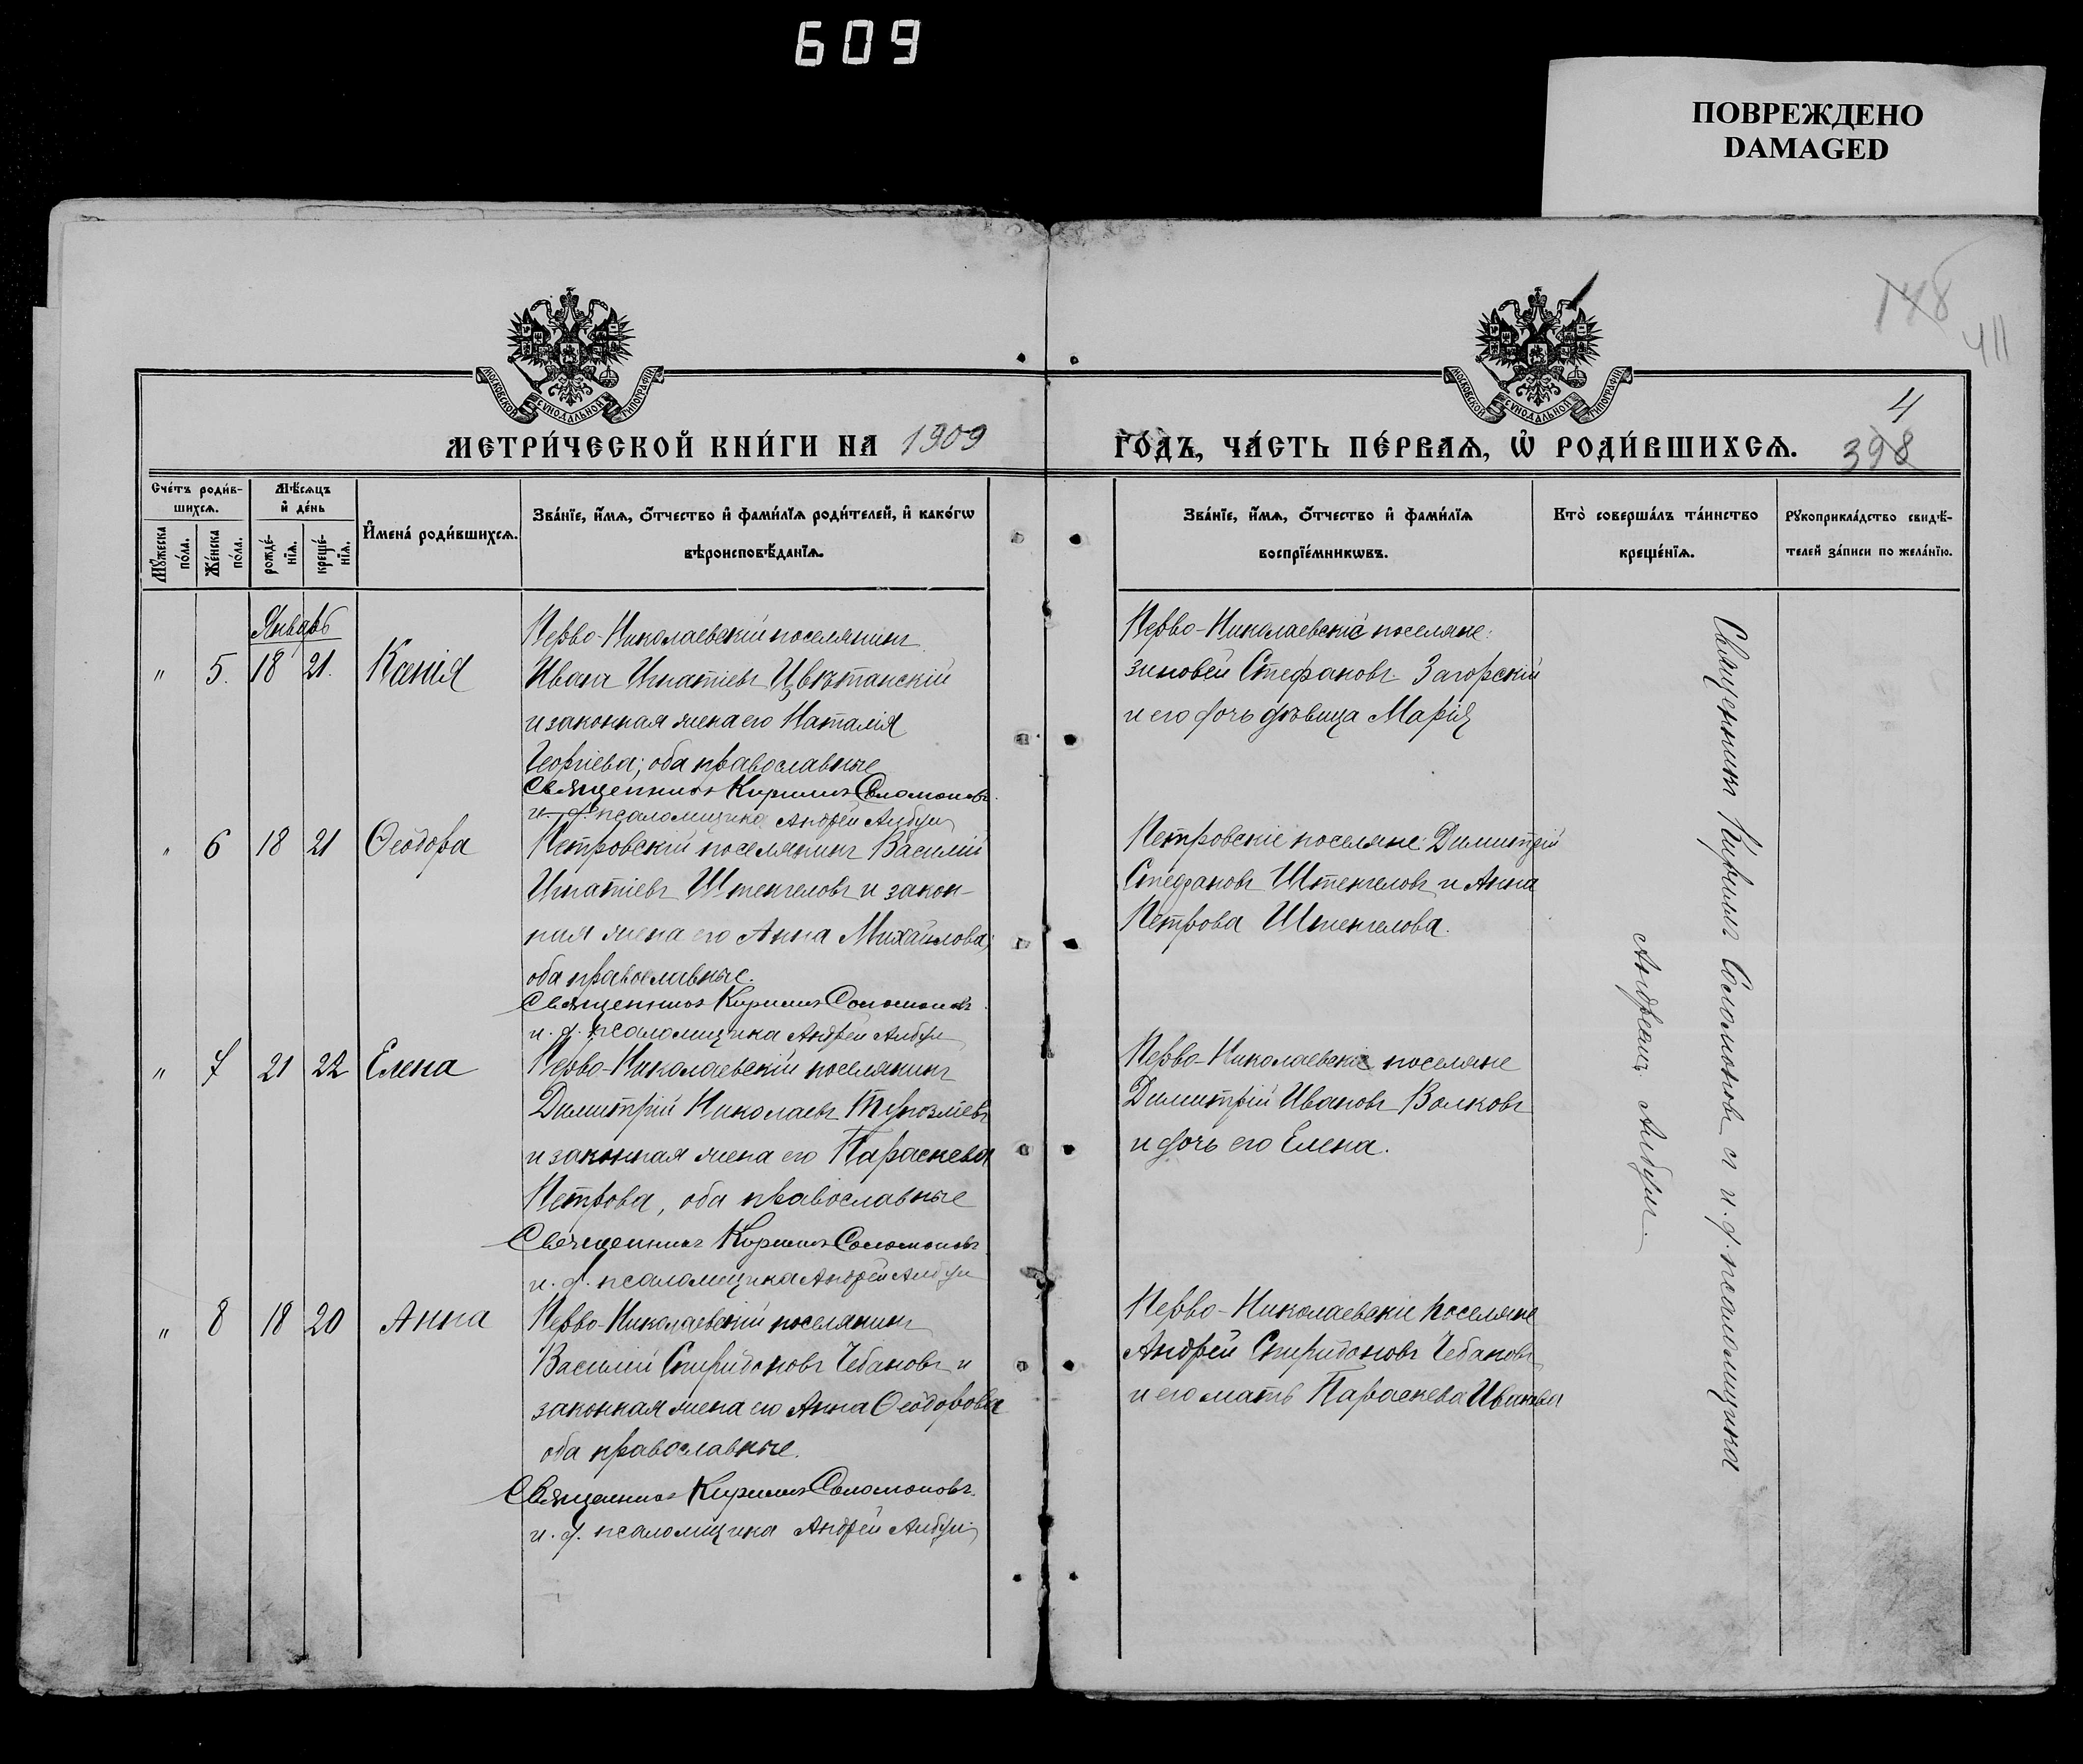 609
ПОВРЕЖДЕНО
DAMAGED
148
411
МОСКОВСКОЙ СУНОДАЛЬНОЙ ТИПОГРАФІИ
МОСКОВСКОЙ СУНОДАЛЬНОЙ ТИПОГРАФІИ
4
398
МЕТРИ́ЧЕСКОЙ КНИ́ГИ НА 1909
ГОДЪ, ЧА́СТЬ ПЕ́РВАѦ, Ѡ҆ РОДИ́ВШИХСѦ.
Сче́тъ роди́в-
шихсѧ.
Мꙋ́жеска по́ла.
Же́нска по́ла.
Мѣ́сѧцъ
и҆ де́нь
рожде́-нїѧ.
креще́-нїѧ.
И҆мена̀ роди́вшихсѧ.
Зва́нїе, и҆́мѧ, ѻ҆́тчество и҆ фами́лїѧ роди́телей, и҆ како́гѡ
вѣроисповѣ́данїѧ.
Зва́нїе, и҆́мѧ, ѻ҆́тчество и҆ фами́лїѧ
воспрїе́мникѡвъ.
Кто̀ соверша́лъ та́инство
креще́нїѧ.
Рꙋкоприкла́дство свидѣ́-
телей за́писи по жела́нїю.
Январь
" 5. 18 21. Ксенія
Перво-Николаевскій поселянинъ
Иванъ Игнатіевъ Цвѣтанскій
и законная жена его Наталія
Георгіева; оба православные
Священникъ Кириллъ Соломоновъ.
и. д. псаломщика Андрей Албул
Перво-Николаевскіе поселяне:
Зиновей Стефановъ Загорскій
и его дочь дѣвица Марія
" 6 18 21 Ѳеодора
Петровскій поселянинъ Василій
Игнатіевъ Штенгеловъ и закон-
ная жена его Анна Михайлова;
оба православные.
Священникъ Кириллъ Соломоновъ.
и. д. псаломщика Андрей Албул
Петровскіе поселяне: Димитрій
Стефановъ Штенгеловъ и Анна
Петрова Штенгелова.
" 7 21 22 Елена
Перво-Николаевскій поселянинъ
Димитрій Николаевъ
и законная жена его Параскева
Петрова, оба православные
Священникъ Кириллъ Соломоновъ
и. д. псаломщика Андрей Албул
Перво-Николаевскіе поселяне
Димитрій Ивановъ Волковъ
и дочь его Елена.
" 8 18 20 Анна
Перво-Николаевскій поселянинъ
Василій Спиридоновъ Чебановъ и
законная жена его Анна Ѳеодорова
оба православные.
Священникъ Кириллъ Соломоновъ.
и. д. псаломщика Андрей Албул
Перво-Николаевскіе поселяне
Андрей Спиридоновъ Чебановъ
и его мать Параскева Иванова
Священникъ Кириллъ Соломоновъ съ и. д. псаломщика
Андреемъ Албул.